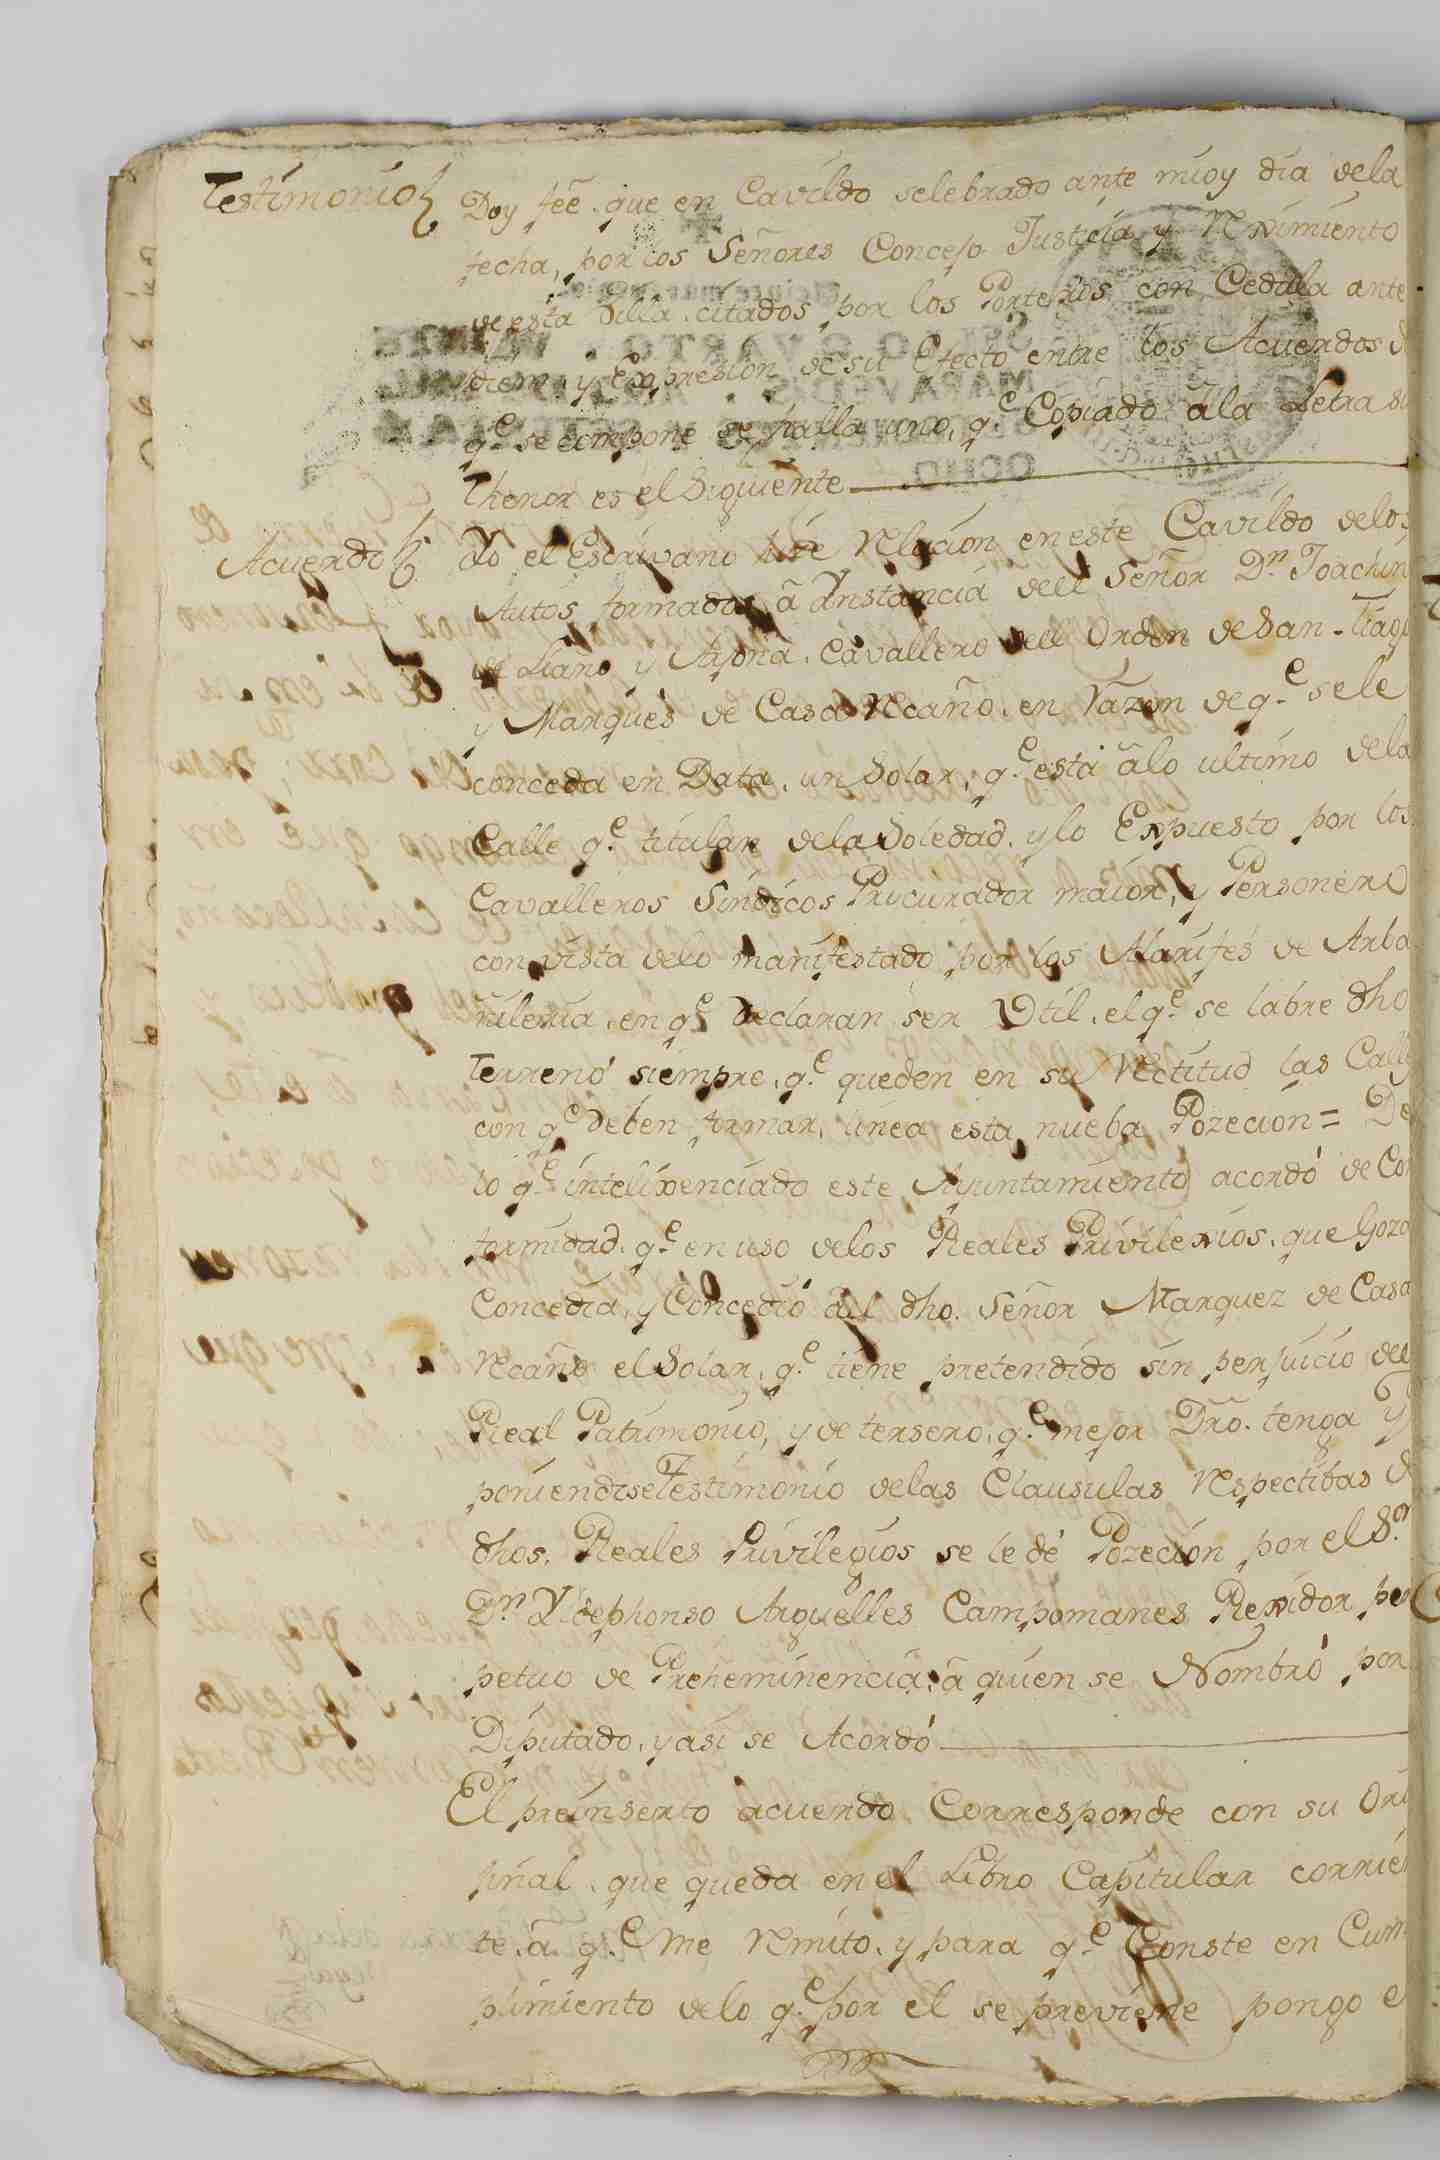 Testimonio Doy feê. que en Cavildo selebrado ante mi oy dia dela
fecha, por los Señores Concejo Justicia y Reximiento
de esta Villa. citados por los Porteros con Cedula ante
diem. y Expresion de su Efecto entre los Acuerdos d
q.e se compone se halla uno, q.e Copiado â la Letra su
thenor es el Siguiente
Acuerdo Yo el Escrivano hise Relacion en este Cavildo delos
Autos formados â Ynstancia dell Señor D.n Joachin
de Liaño y Arjona. Cavallero dell Orden de San-Tiago
y Marques de Casa Recaño. en Razon de q.e se le
conceda en Data. un Solar, q.e está âlo ultimo dela
Calle q.e titulan dela Soledad. y lo Expuesto por los
Cavalleros Sindicos Procurador maior, y Personero
con vista delo manifestado por los Alarifes de Arba
ñileria. en q.e declaran ser Util. el q.e se labre dho
Terreno siempre. q.e queden en su Rectitud las Call
con q.e deben formar. linea esta nueba Pozecion = De
lo q.e intelixenciado este Ayuntamiento acordó de Con
formidad. q.e en uso delos Reales Privilexios. que Goza
Concedia, y Concedió âl dho. Señor Marquez de Casa
Recaño el Solar, q.e tiene pretendido sin perjuicio del
Real Patrimonio, y de tersero. q.e mejor Dro. tenga Y
poniendose Testimonio delas Clausulas Respectibas d
dhos. Reales Privilegios se le dé Pozecion por el S.or
D.n Yldephonso Arguelles Campomanes Rexidor per
petuo de Preheminencia. â quien se Nombró por
Diputado. y asi se Acordó
El preinserto acuerdo Corresponde con su Ori
ginal. que queda en el Libro Capitular corrien
te. â q.e me Remito. y para q.e Conste en Cum
plimiento delo q.e por el se previene pongo e